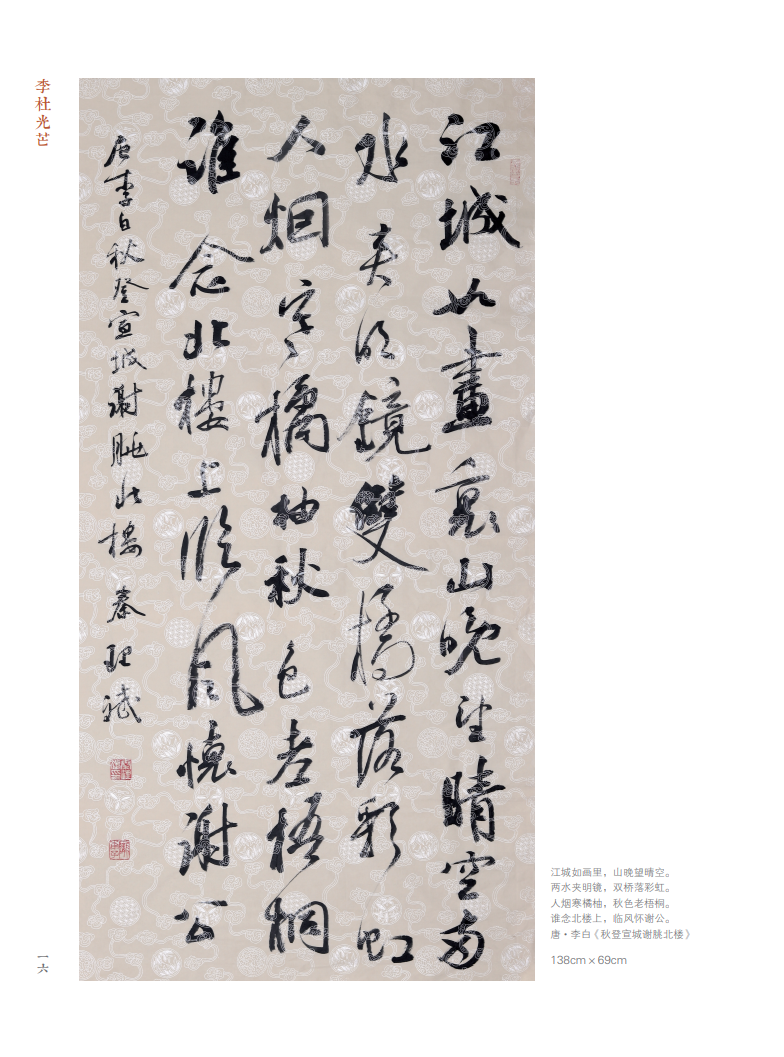 李杜光芒
江城如畫裏山晚望晴空兩
水夹明鏡雙橋落彩虹
人烟寒橘柚秋色老梧桐
谁念北樓上临风懷謝公
唐李白秋登宣城謝朓北樓 秦理斌
江城如画里，山晚望晴空。
两水夹明镜，双桥落彩虹。
人烟寒橘柚，秋色老梧桐。
谁念北楼上，临风怀谢公。
唐·李白《秋登宣城谢朓北楼》
138cm×69cm
一六